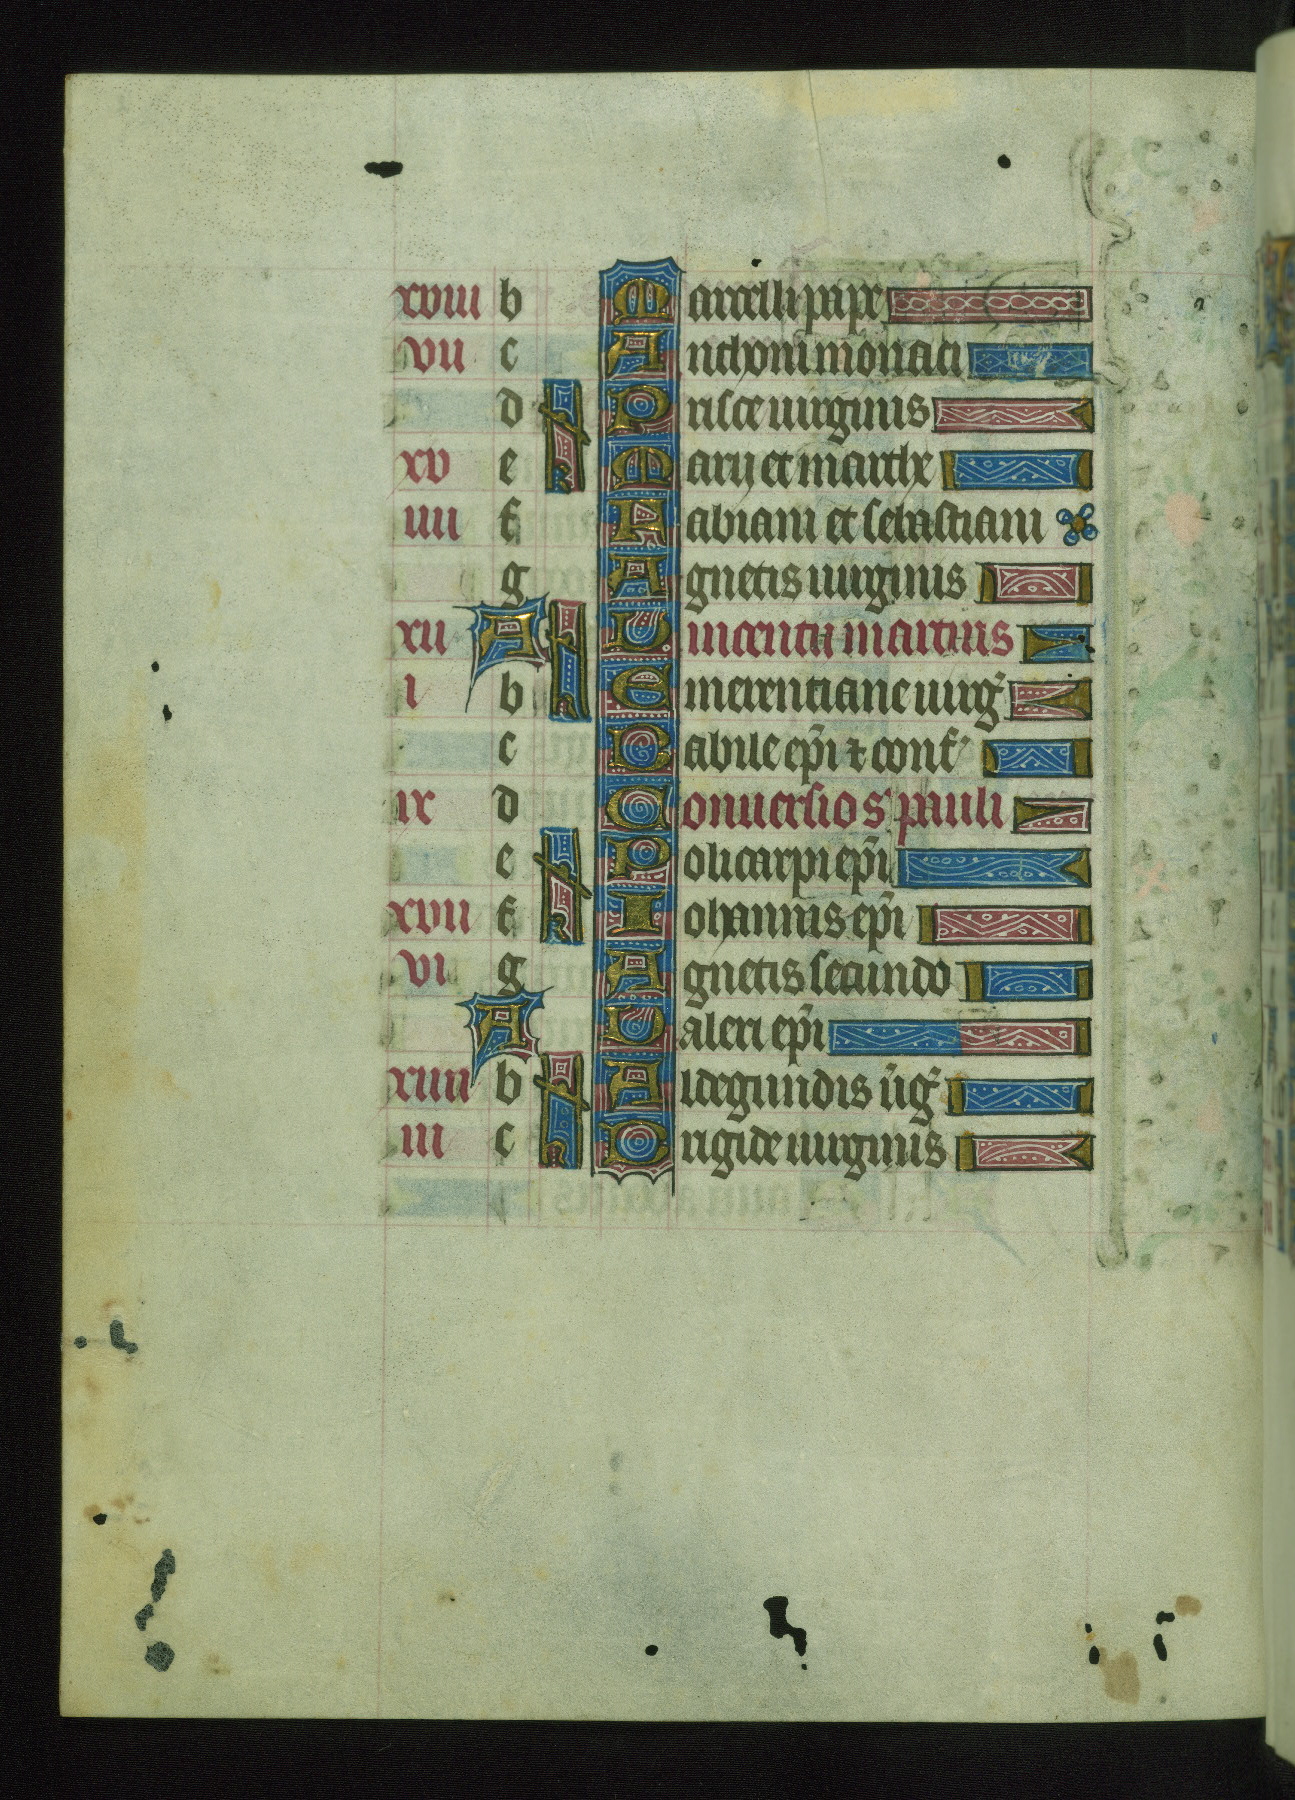 xviii b Marcelli pape
vii c Anthoni monaci
d Prisce uirginis
xv e Marij et marthe
iiii f Fabiani et sebastiani
g Agnetis uirginis
xii A Vincentii martiris
i b Emerentiane uirg̃
c Babile ep̃i ⁊ conf̃
ix d Conuersio s pauli
e Policarpi ep̃i
xvii f Iohannis ep̃i
vi g Agnetis secundo
A Valeri ep̃i
xiiii b Aldegundis ũg̃
iii c Brigide uirginis